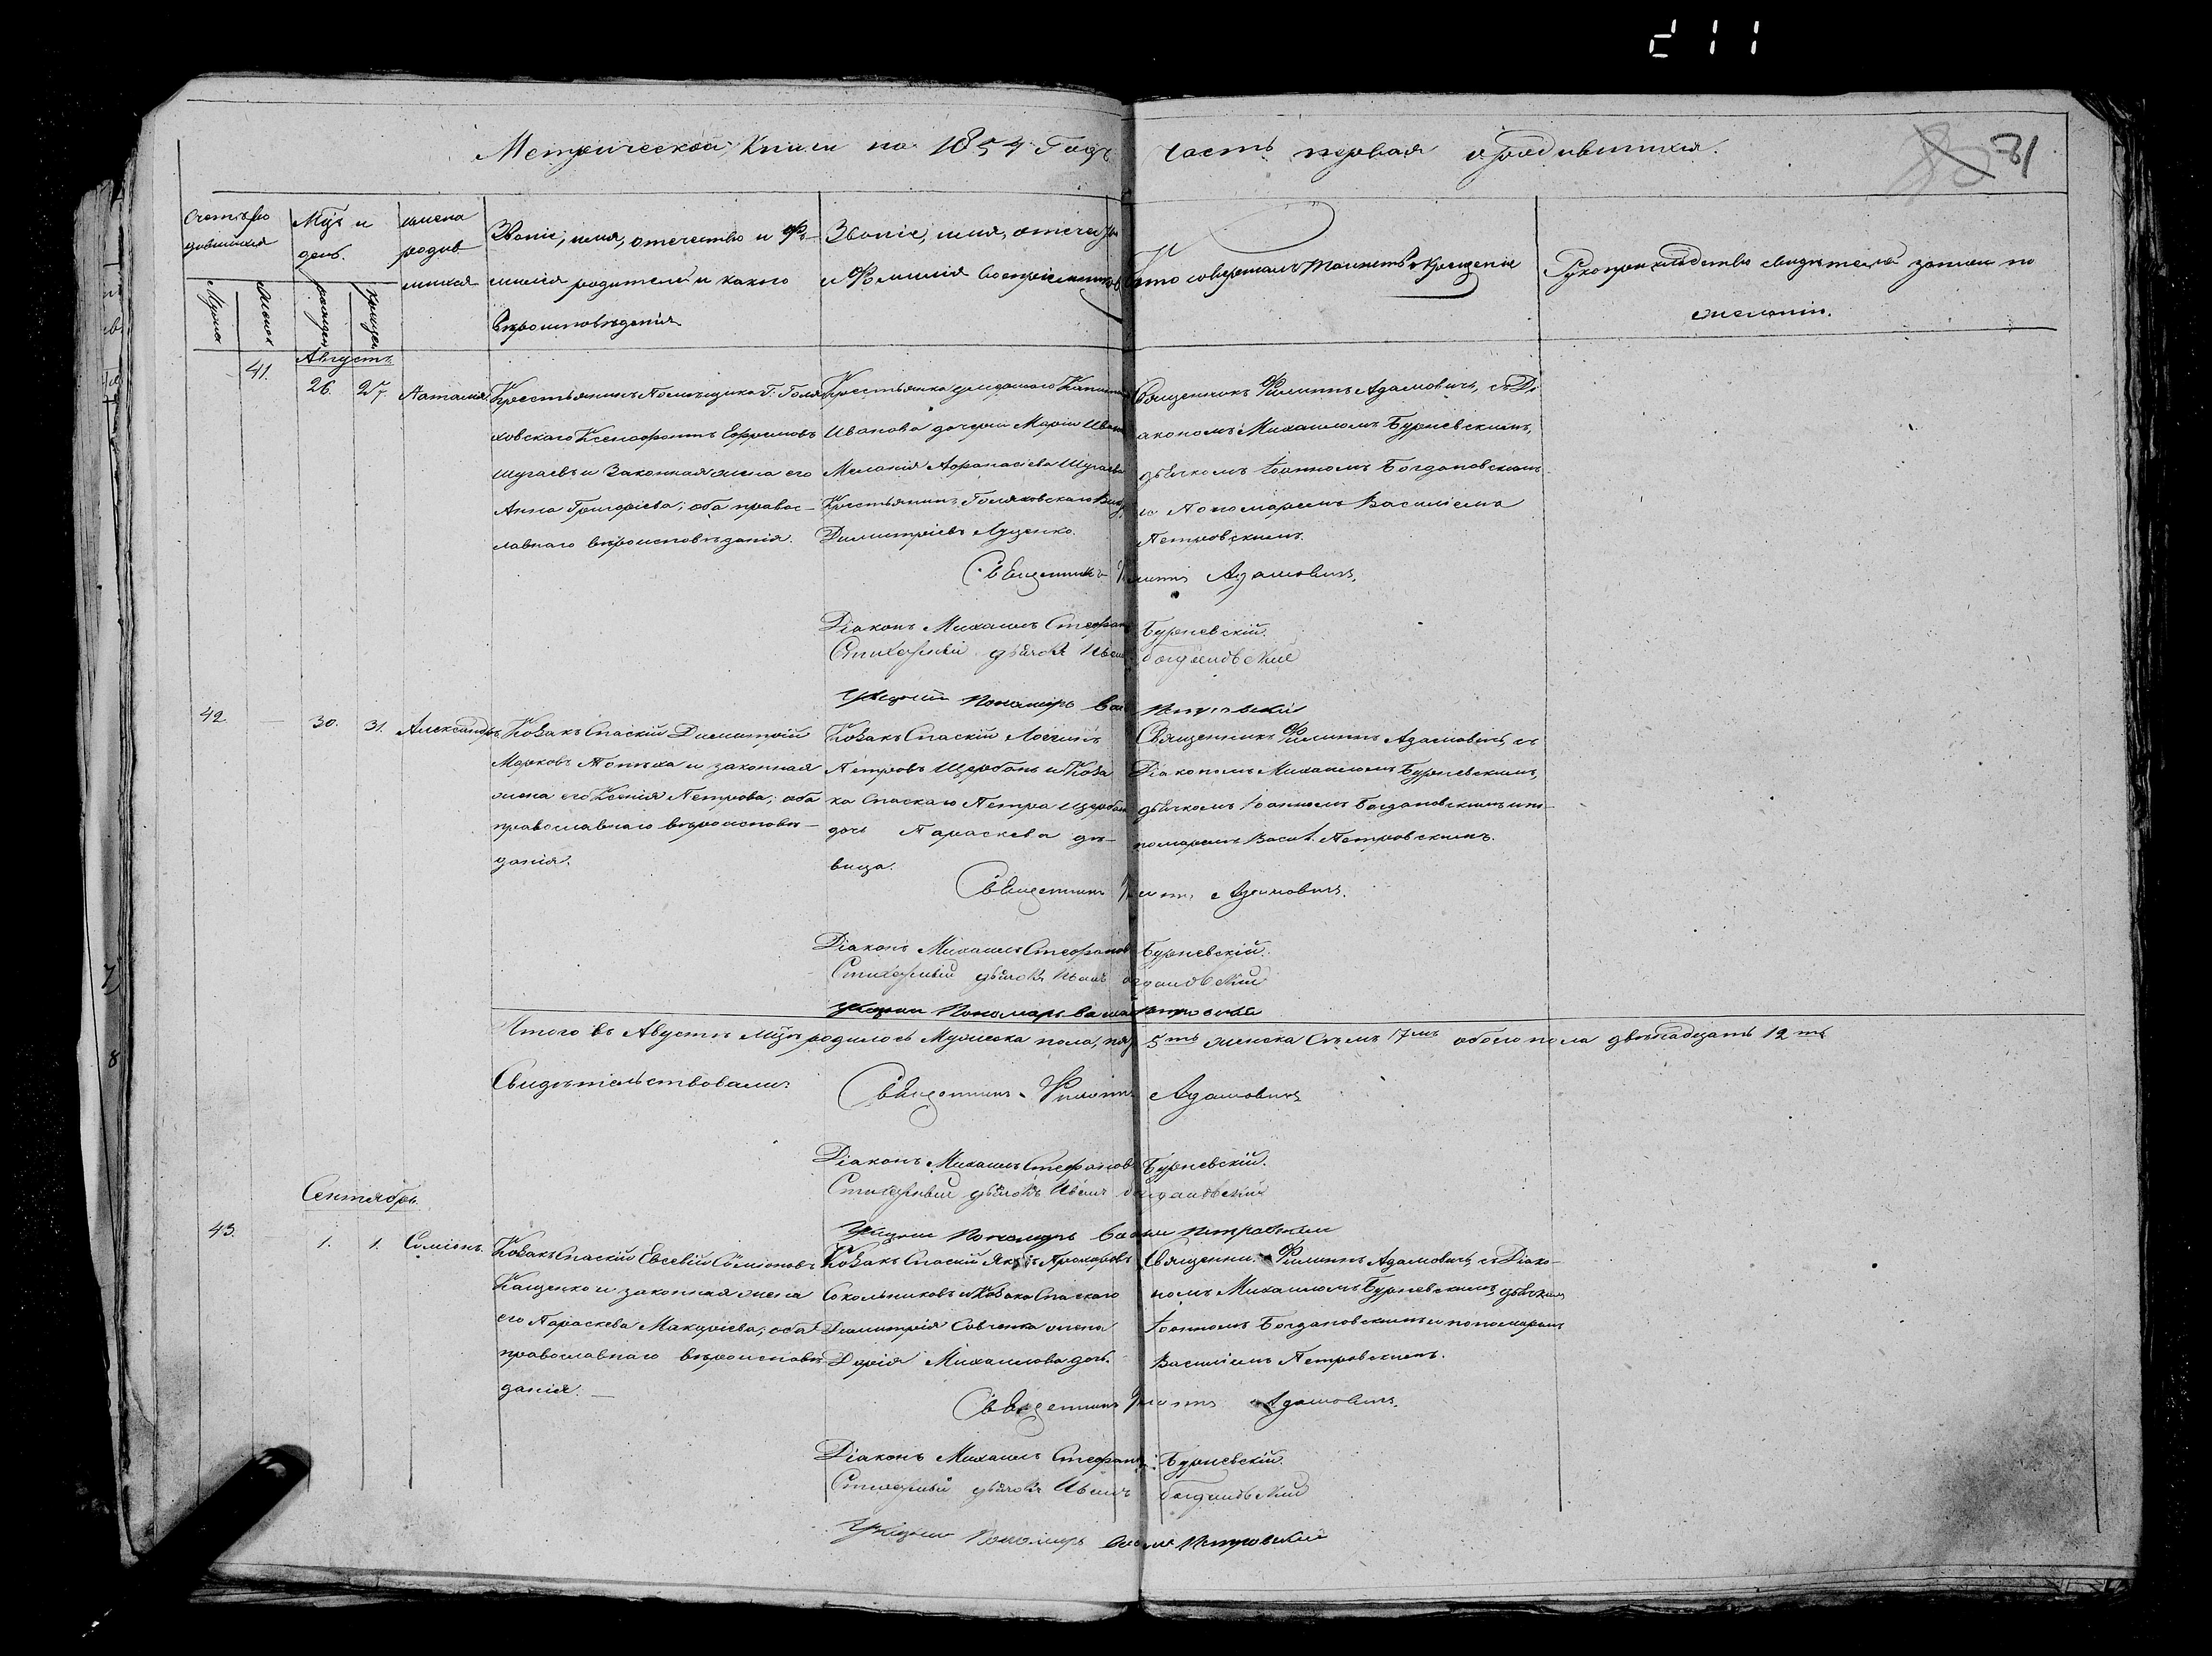 211
Метрической Книги на 1854 Годъ часть первая о родившихся.
31
Счетъ родившихся
Мцъ и день.
имена родившихся
Званіе, имя, отечество и Фамилія родителей и какого вѣроисповѣданія
Званіе, имя, отечество и Фамилія воспріемниковъ
Кто совершалъ Таинство Крещенія
Рукоприкладство свидѣтелей записи по желанію.
Августъ.
41. 26. 27. Наталія
Крестьянинъ Помѣщика Г. Голяховскаго Ксенофонтъ Ефремовъ
Шугаевъ и Законная жена его
Анна Григоріева; оба православнаго вѣроисповѣданія.
Иванова дочери Марія
Меланія Афанасіева Шугаева
Крестьянинъ Голяховскаго
Димитріевъ Луценко.
Священникъ Филиппъ Адамовичъ, съ Діакономъ Михаиломъ Бурневскимъ,
дьячкомъ Іоанномъ Богдановскимъ
и Пономаремъ Василіемъ
Петровскимъ.
Священникъ Филиппъ Адамовичъ.
Діаконъ Михаилъ Стефановъ Бурневскій.
Стихарный дьячокъ Иванъ Богдановскій
Указный Пономарь Василій Петровскій
42. 30. 31. Александръ
Козакъ Спаскій Димитрій
Марковъ и законная
жена его Ксенія Петрова; оба
православнаго вѣроисповѣданія.
Козакъ Спаскій Логгинъ
Петровъ Щербань и Козака Спаскаго Петра Щербаня
дочь Параскева дѣвица.
Священникъ Филиппъ Адамовичъ, съ
Діакономъ Михаиломъ Бурневскимъ,
дьячкомъ Іоанномъ Богдановскимъ и пономаремъ Васил. Петровскимъ.
Священникъ Филиппъ Адамовичъ.
Діаконъ Михаилъ Стефановъ Бурневскій.
Стихарный дьячокъ Иванъ Богдановскій
Указный Пономарь Василій Петровскій
Итого въ Августѣ Мцѣ родилось Мужеска пола, пять 5ть женска Семь 7мь обоего пола двѣнадцать 12ть
Свидѣтельствовали:
Священникъ Филиппъ Адамовичъ
Діаконъ Михаилъ Стефановъ Бурневскій.
Стихарный дьячокъ Иванъ Богдановскій
Указный Пономарь Василій Петровскій
Сентябрь.
43. 1. 1. Симеонъ.
Козакъ Спаскій Евсевій Симіоновъ
Кащенко и законная жена
его Параскева Макаріева; оба
православнаго вѣроисповѣданія.
Козакъ Спаскій Яковъ Прохоровъ
Сокольниковъ и Козака Спаскаго
Димитрія Савченка жена
Дарія Михаилова дочь.
Священник. Филиппъ Адамовичъ, съ Діакономъ Михаиломъ Бурневскимъ, дьячкомъ
Іоанномъ Богдановскимъ и пономаремъ
Василіемъ Петровскимъ.
Священникъ Филиппъ Адамовичъ.
Діаконъ Михаилъ Стефановъ Бурневскій.
Стихарный дьячокъ Иванъ Богдановскій
Указный Пономарь Василій Петровскій